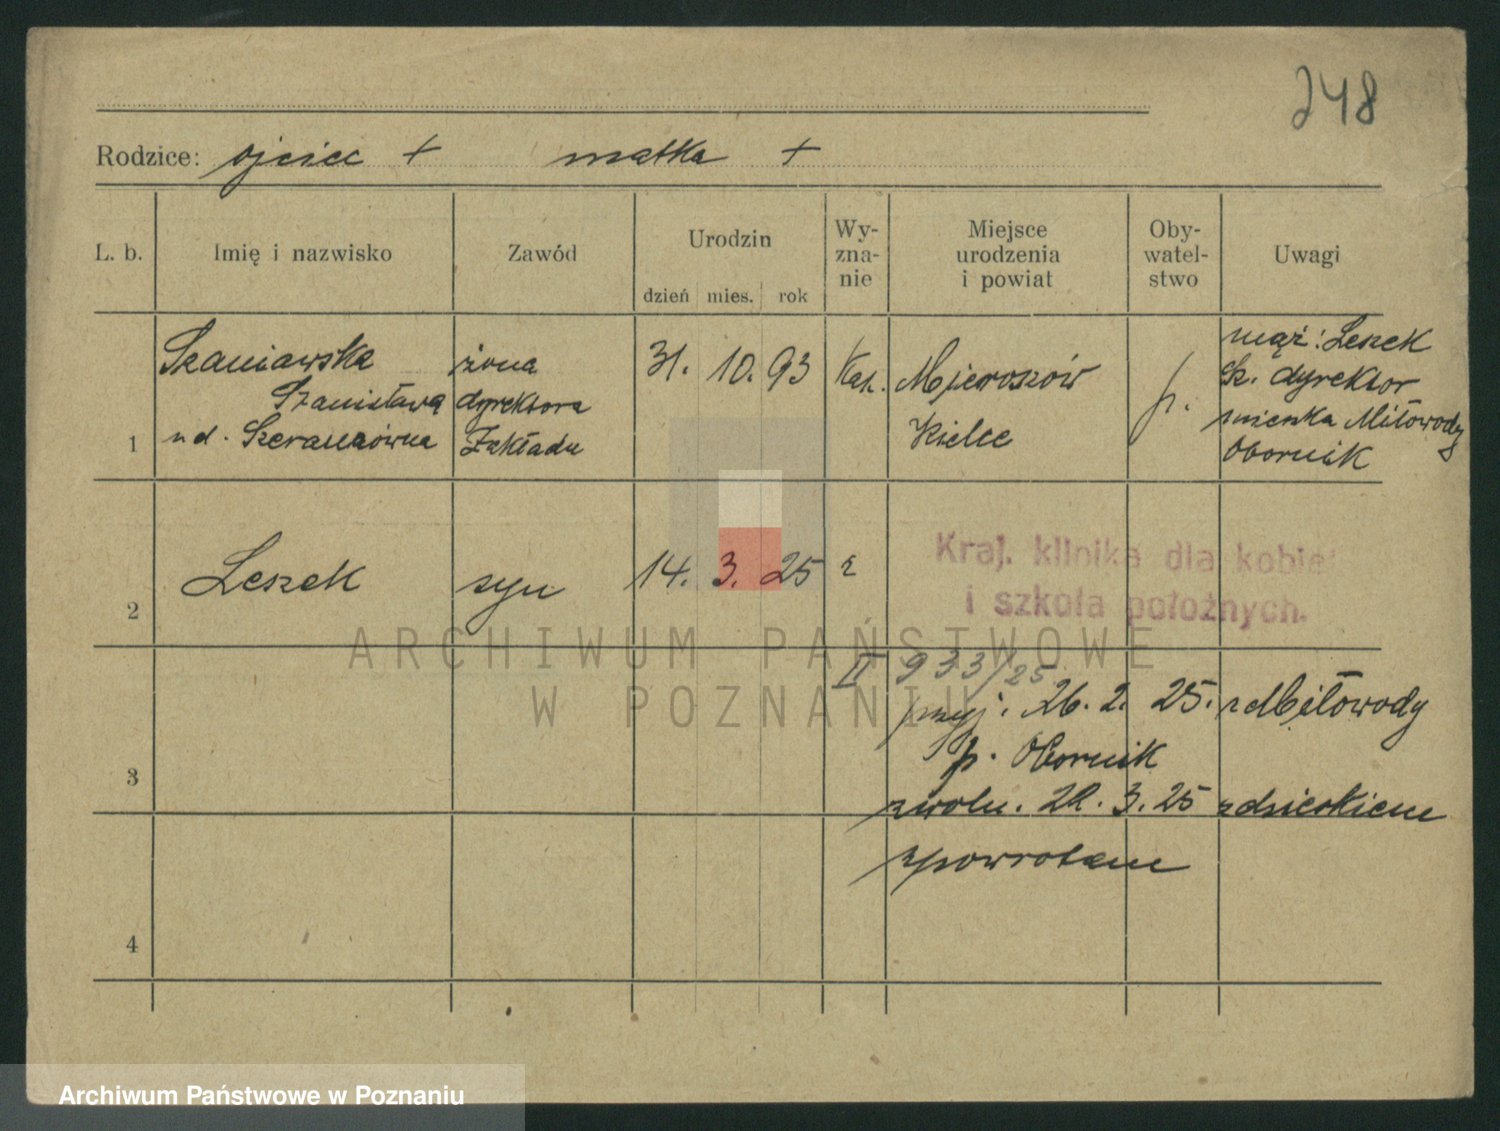 248
Rodzice: ojciec + matka +
L. b. Imię i nazwisko Zawód Urodzin dzień mies. rok Wy-zna-nie Miejsce urodzenia i powiat Oby-watel-stwo Uwagi
1 Szaniawska Stanisława ud. żona dyrektora Zakładu 31. 10. 93 Kat. Mieroszów Kielce p. mąż: Leszek Sz. dyrektor mieszka Miłowody Obornik
2 Leszek syn 14. 3. 25 r
Kraj. klinika dla kobiet
i szkoła położnych.
II 933/25
przyj. 26. 2. 25. z Miłowody
p. Obornik
3
zwoln. 22. 3. 25 z dzieckiem
zpowrotem
4
ARCHIWUM PAŃSTWOWE
W POZNANIU
Archiwum Państwowe w Poznaniu